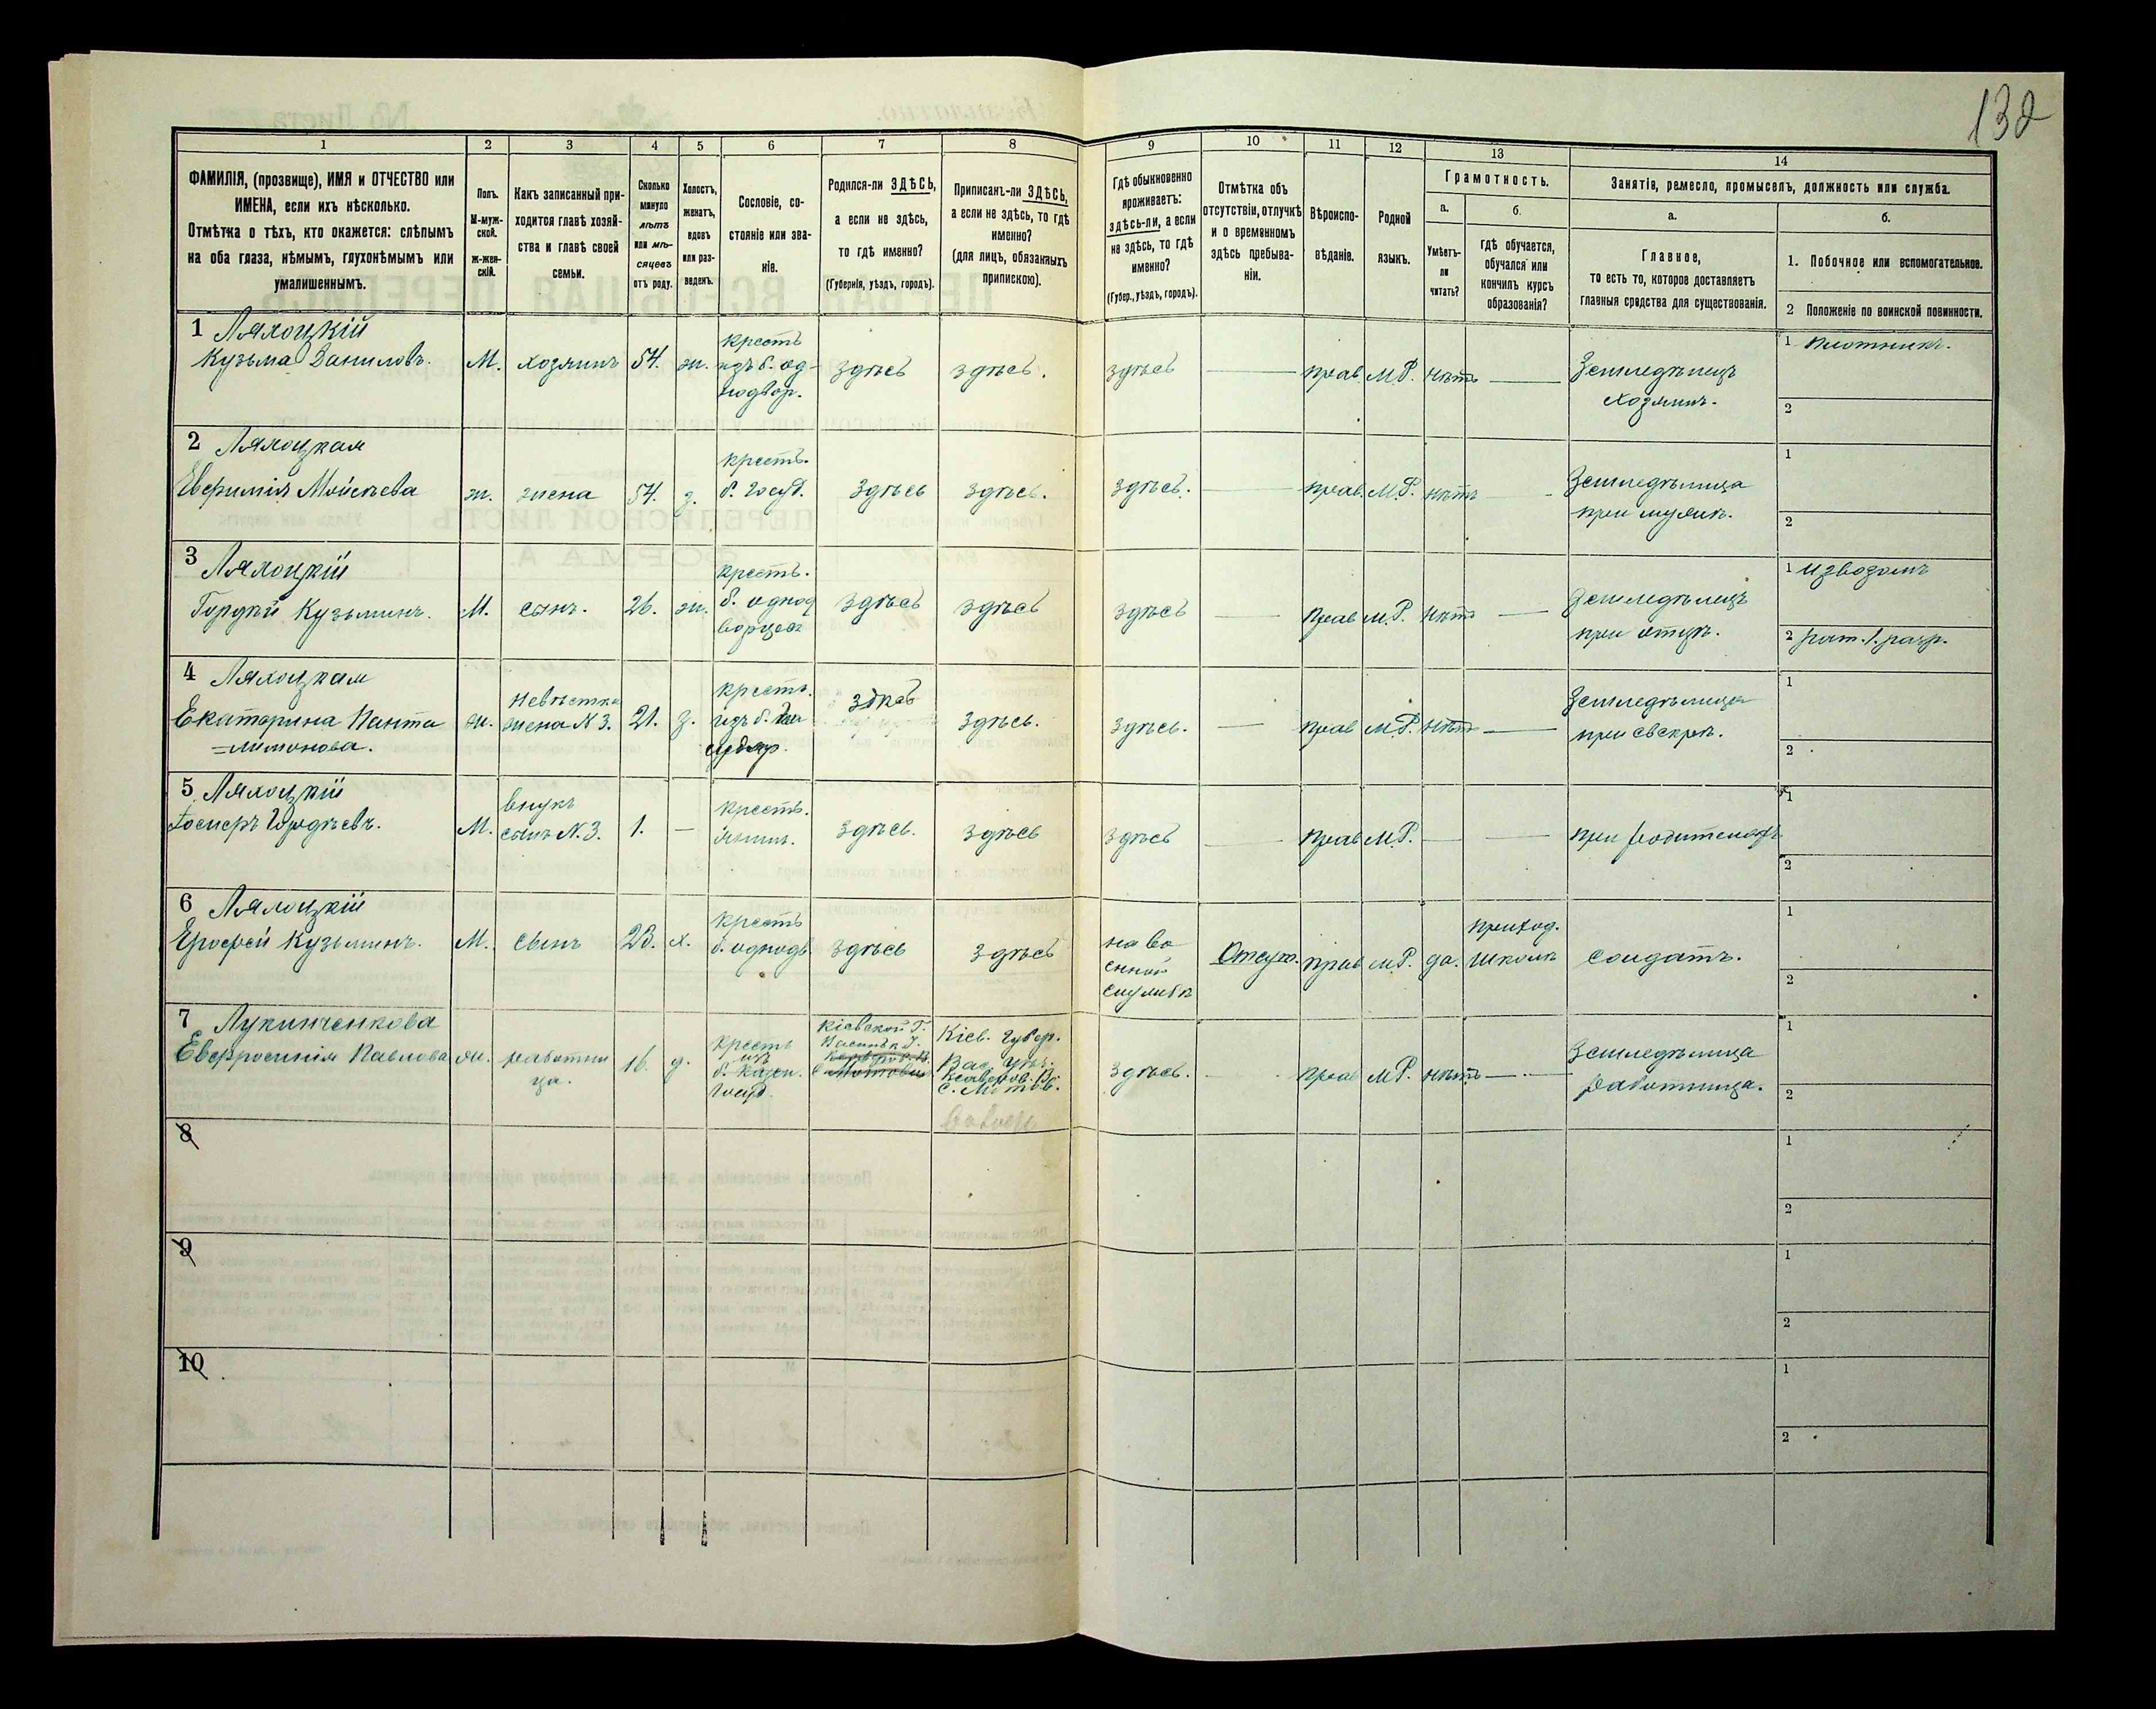 132
1 2 3 4 5 6 7 8 9 10 11 12 13 14
ФАМИЛІЯ, (прозвище), ИМЯ и ОТЧЕСТВО или
ИМЕНА, если ихъ нѣсколько.
Отмѣтка о тѣхъ, кто окажется: слѣпымъ
на оба глаза, нѣмымъ, глухонѣмымъ или
умалишеннымъ.
Полъ.
М-муж-
ской.
Ж-жен-
скій.
Какъ записанный при-
ходится главѣ хозяй-
ства и главѣ своей
семьи.
Сколько
минуло
лѣтъ
или мѣ-
сяцевъ
отъ роду.
Холостъ,
женатъ,
вдовъ
или раз-
веденъ.
Сословіе, со-
стояніе или зва-
ніе.
Родился-ли ЗДѢСЬ,
а если не здѣсь,
то гдѣ именно?
(Губернія, уѣздъ, городъ).
Приписанъ-ли ЗДѢСЬ,
а если не здѣсь, то гдѣ
именно?
(для лицъ, обязанныхъ
припискою).
Гдѣ обыкновенно
проживаетъ:
здѣсь-ли, а если
не здѣсь, то гдѣ
именно?
(Губер., уѣздъ, городъ).
Отмѣтка объ
отсутствіи, отлучкѣ
и о временномъ
здѣсь пребыва-
ніи.
Вѣроиспо-
вѣданіе.
Родной
языкъ.
Грамотность.
а.
Умѣетъ-
ли
читать?
б.
гдѣ обучается,
обучался или
кончилъ курсъ
образованія?
Занятіе, ремесло, промыселъ, должность или служба.
а.
Главное,
то есть то, которое доставляетъ
главныя средства для существованія.
б.
1. Побочное или вспомогательное.
2 Положеніе по воинской повинности.
1 Ляхоцкій
Кузьма Даниловъ. М. хозяинъ 54. ж.
крестъ
изъ б. од-
нодвор.
здѣсь здѣсь. здѣсь — прав. М.Р. нѣтъ —
Земледѣлецъ
хозяинъ.
1 Плотникъ.
2
2 Ляхоцкая
Евфимія Мойсѣева ж. жена 54. з.
крестъ.
б. Госуд.
здѣсь здѣсь. здѣсь. — прав. М.Р. нѣтъ —
Земледѣлица
при мужѣ.
1
2
3 Ляхоцкій
Гордѣй Кузьминъ. М. сынъ. 26. ж.
крестъ.
б. однод
ворцевъ
здѣсь здѣсь здѣсь — прав М.Р. нѣтъ —
Земледѣлецъ
при отцѣ.
1 извозомъ
2 рат. 1. разр.
4 Ляхоцкая
Екатерина Панте
=леимонова. ж.
Невѣстка
жена N 3. 21. з.
крестъ.
изъ б.
здѣсь здѣсь. здѣсь. — прав М.Р. нѣтъ —
Земледѣлица
при свекрѣ.
1
2
5 Ляхоцкій
Гордѣевъ. М.
внукъ
сынъ N. 3. 1. —
крестъ.
здѣсь. здѣсь здѣсь — прав М.Р. — —
при родителяхъ
1
2
6 Ляхоцкій
Ерофей Кузьминъ. М. сынъ 23. х.
крестъ
б. однодв.
здѣсь здѣсь
на во
енной
службѣ
Отсут. прав М.Р. да.
приход.
школѣ
солдатъ.
1
2
7 Лукинченкова
Евфросинія Павлова ж.
работни
ца. 16. д.
крестъ
изъ
б. казен.
Госуд.
Кіевской Г.
Кіев. Губер.
Вас. уѣз.
здѣсь. — прав М.Р. нѣтъ —
Земледѣлица
работница.
1
2
8
1
2
9
1
2
10
1
2